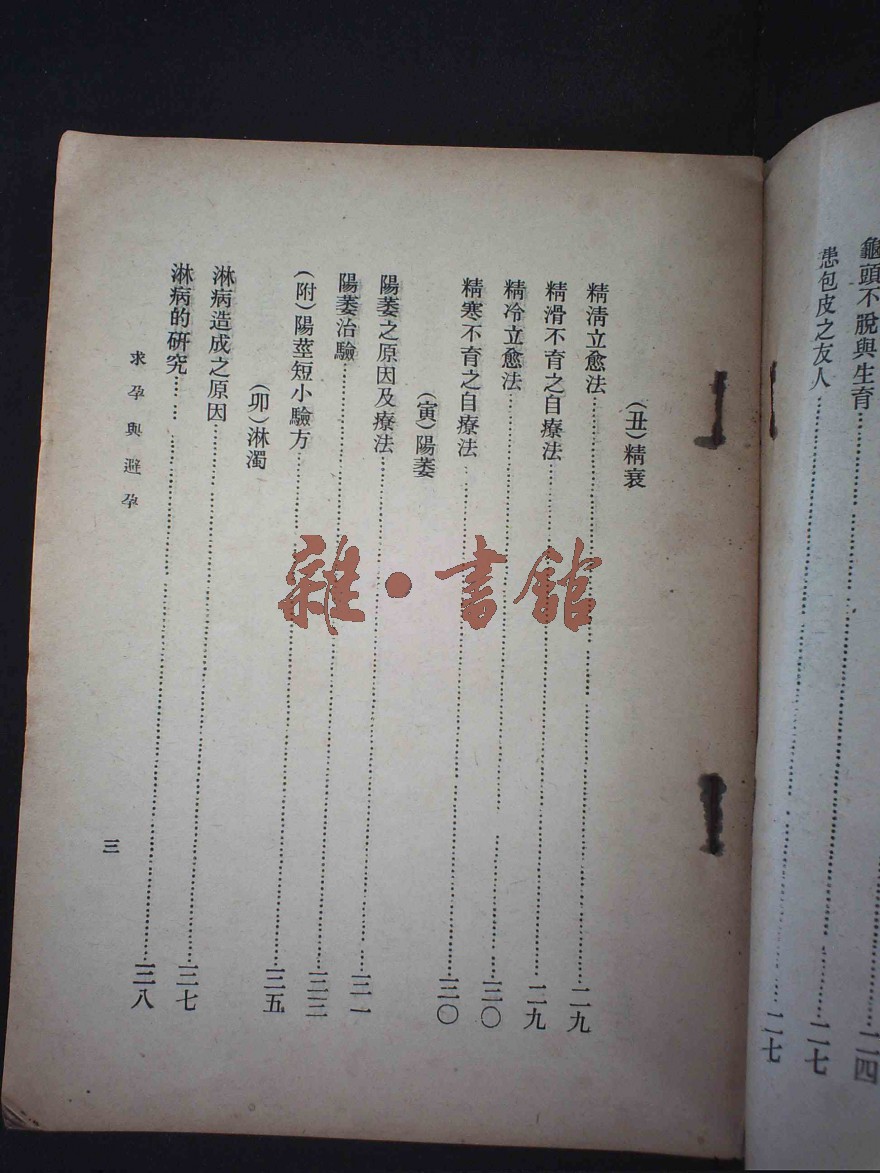 二四
龜頭不脫與生育……二七
患包皮之友人……二七
（丑）精衰
精清立愈法……二九
精滑不育之自療法……二九
精冷立愈法……三〇
精寒不育之自療法……三〇
（寅）陽萎
陽萎之原因及療法……三一
陽萎治驗……三三
（附）陽莖短小驗方……三五
（卯）淋濁
淋病造成之原因……三七
淋病的研究……三八
求孕與避孕
三
雜·書館